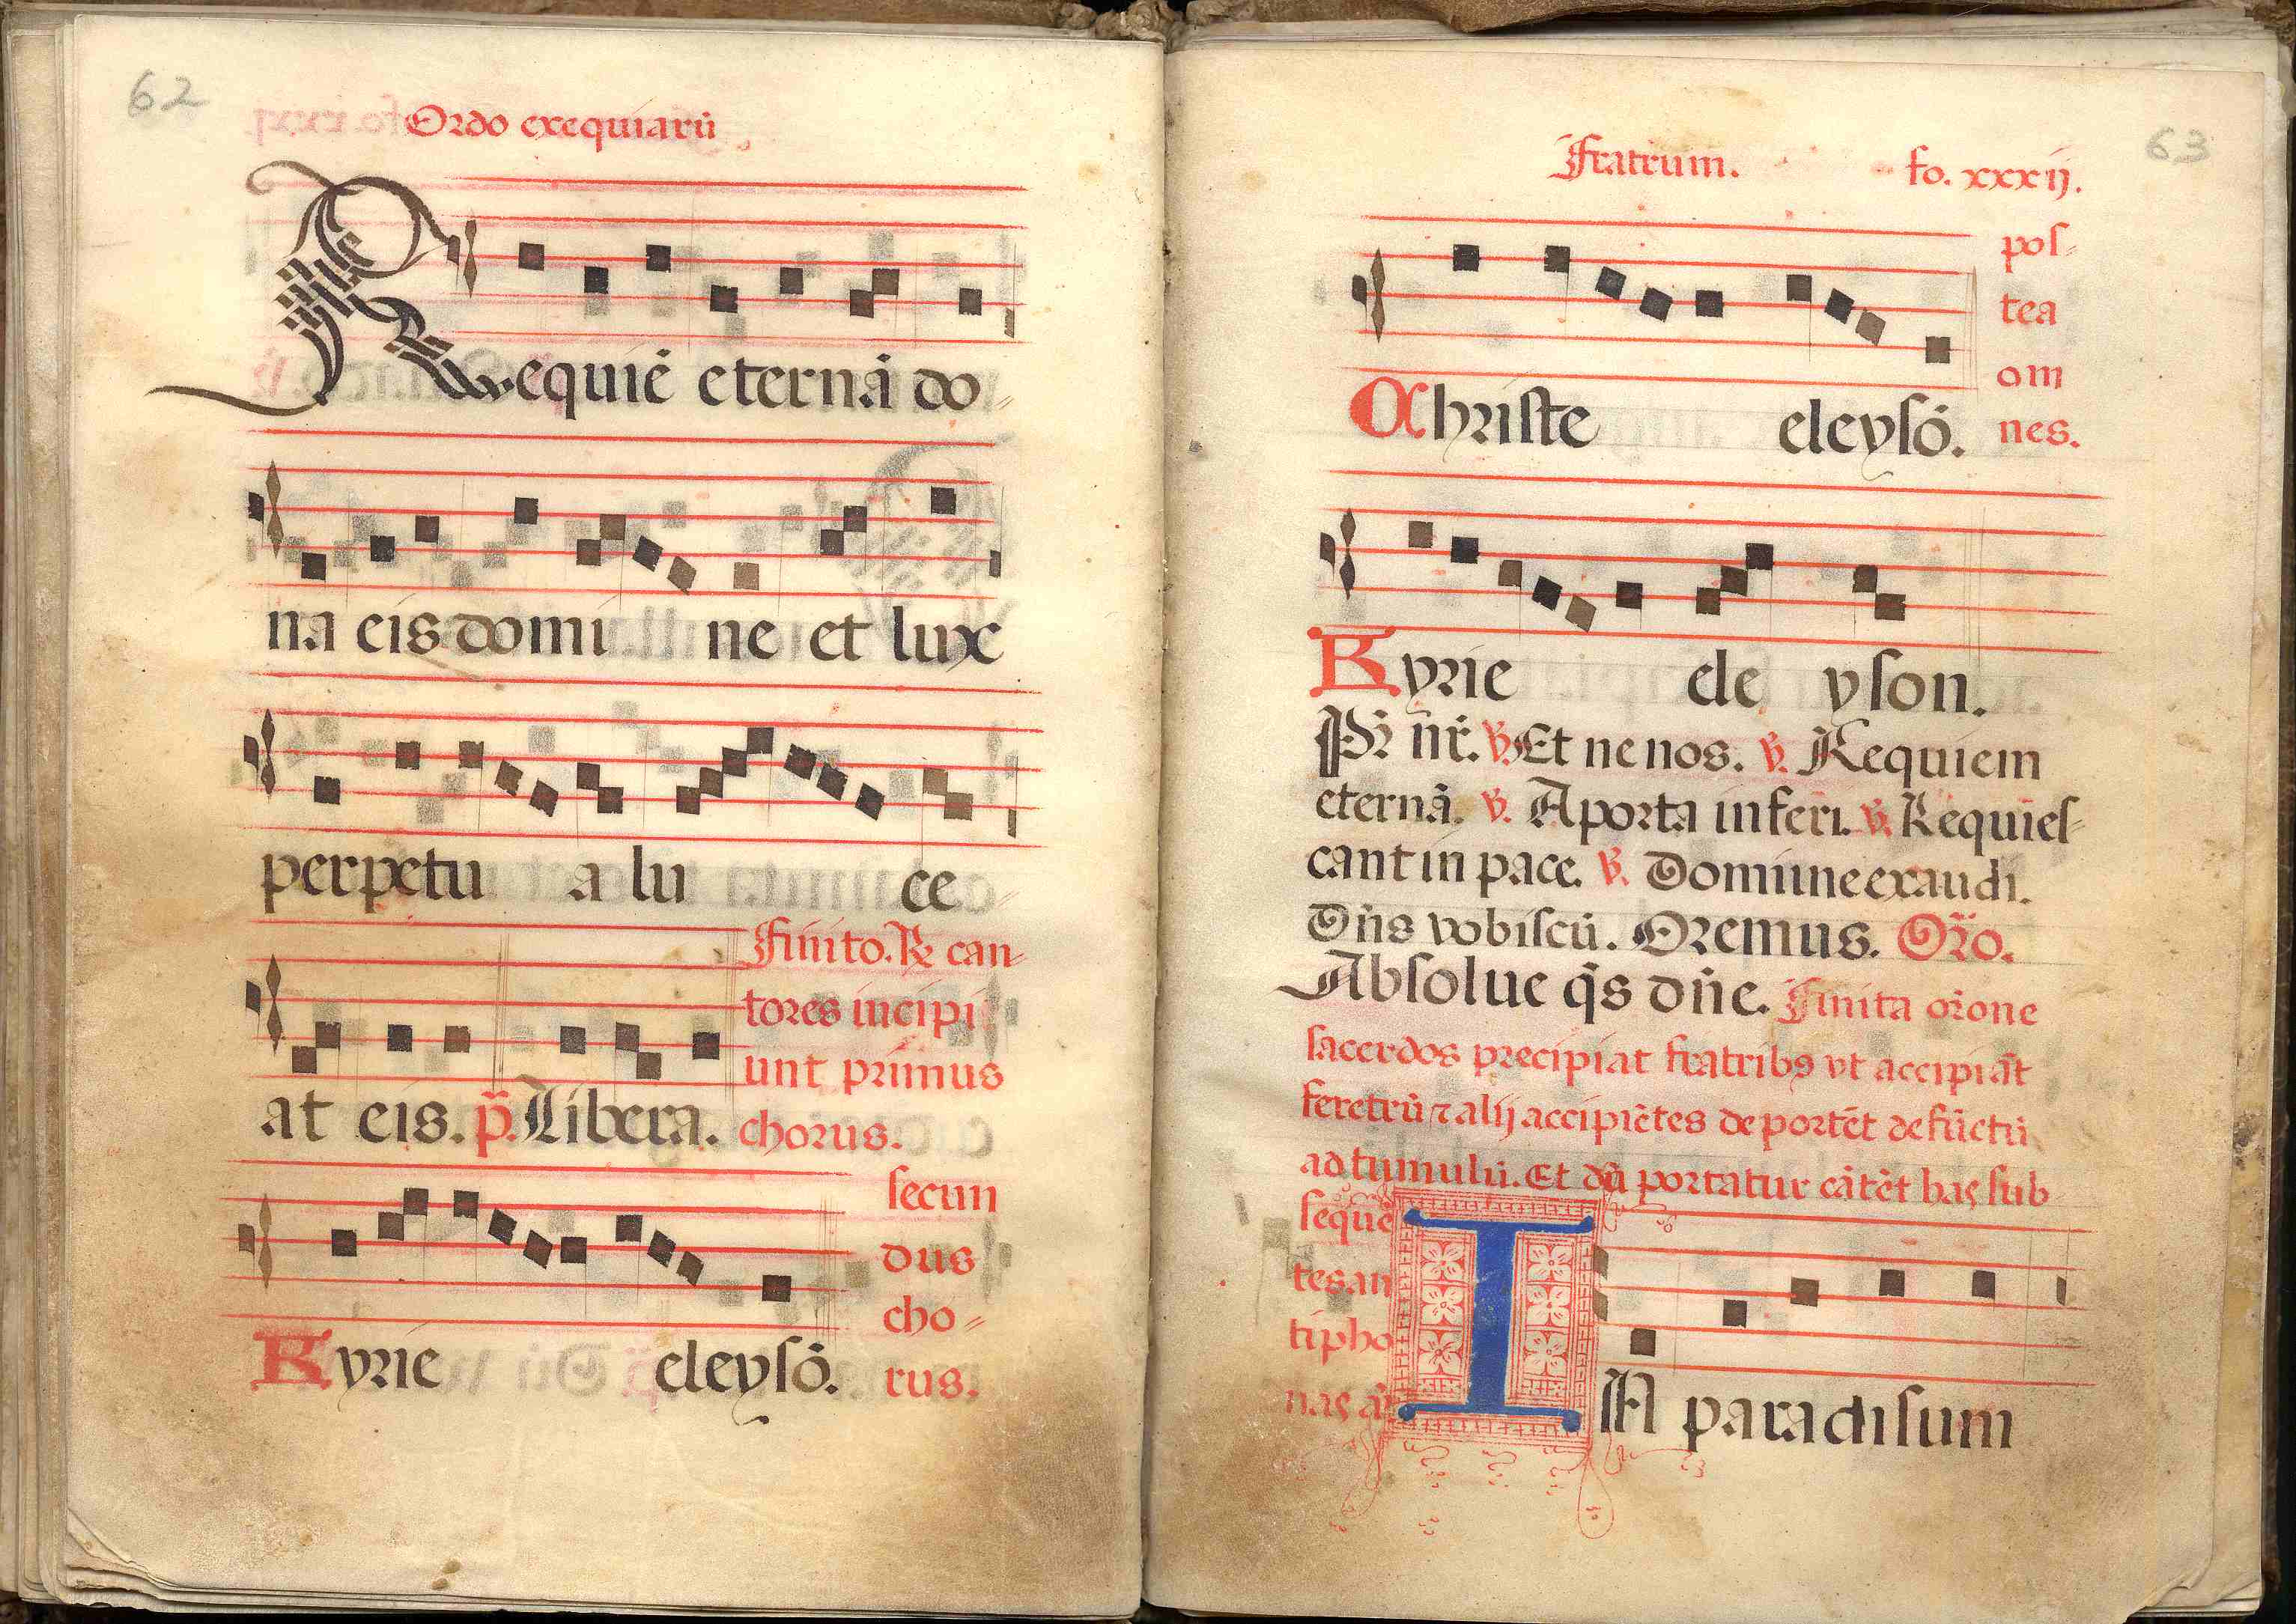 62
Ordo exequiarũ
Requiẽ eternã do-
na eis domi ne et lux
perpetu a lu ce
Finito. ℟ can-
tores incipi
unt primus
at eis. p̃. Libera. chorus.
secun
dus
cho-
Kyrie eleysõ. rus.
63
Fratrum. fo. xxxij.
pos-
tea
om
Christe eleysõ. nes.
Kyrie ele yson.
Pr̃ nr̃. ℣. Et ne nos. ℣. Requiem
eternã. ℣. A porta inferi. ℣. Requies-
cant in pace. ℣. Domine exaudi.
Dñs vobiscũ. Oremus. Or̃o.
Absolue q̃s dñe. Finita or̃one
sacerdos precipiat fratribꝰ vt accipiãt
feretrũ ⁊ alij accipiẽtes deportẽt defũctũ
ad tumulũ. Et dũ portatur cãtẽt has sub
sequẽ
tes an
tipho
nas
IN paradisum